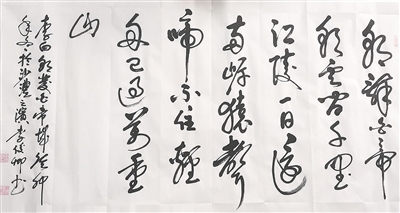 朝辞白帝
彩云间千里
江陵一日还
两岸猿声
啼不住轻
舟已过万重
山
李白朝发白帝城
李
书